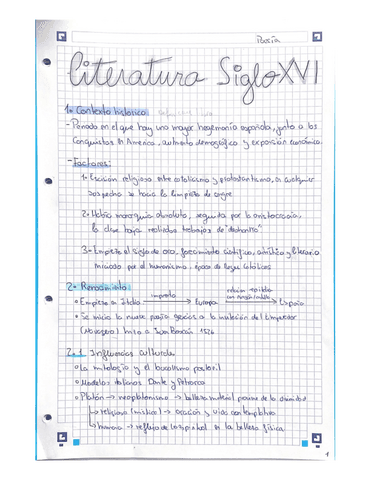 Poesía
Literatura Siglo XVI
1. Contexto histórico
- Periodo en el que hay una mayor hegemonía española, junto a las
Conquistas en América, aumento demográfico y expansión económica.
- Factores:
1. Escisión religiosa entre catolicismo y protestantismo, a cualquier
sospecha se hacía la limpieza de sangre
2. Había monarquía absoluta, seguida por la aristocracia,
la clase baja realizaba trabajos de "deshonra"
3. Empieza el siglo de oro, florecimiento científico, artístico y literario
marcado por el humanismo. época de Reyes Católicos
2. Renacimiento:
Empieza en Italia importa Europa España
Se inicia la nueva poesía gracias a la invitación del Emperador
(Navagero) hizo a Juan Boscán 1526
2.1 Influencias culturales
La mitología y el bucolismo pastoril
Modelos italianos Dante y Petrarca
Platón → neoplatonismo → belleza material procede de la divinidad
religioso (mística) → oración y vida contemplativa
humano → reflejo de lo espiritual en la belleza física
1